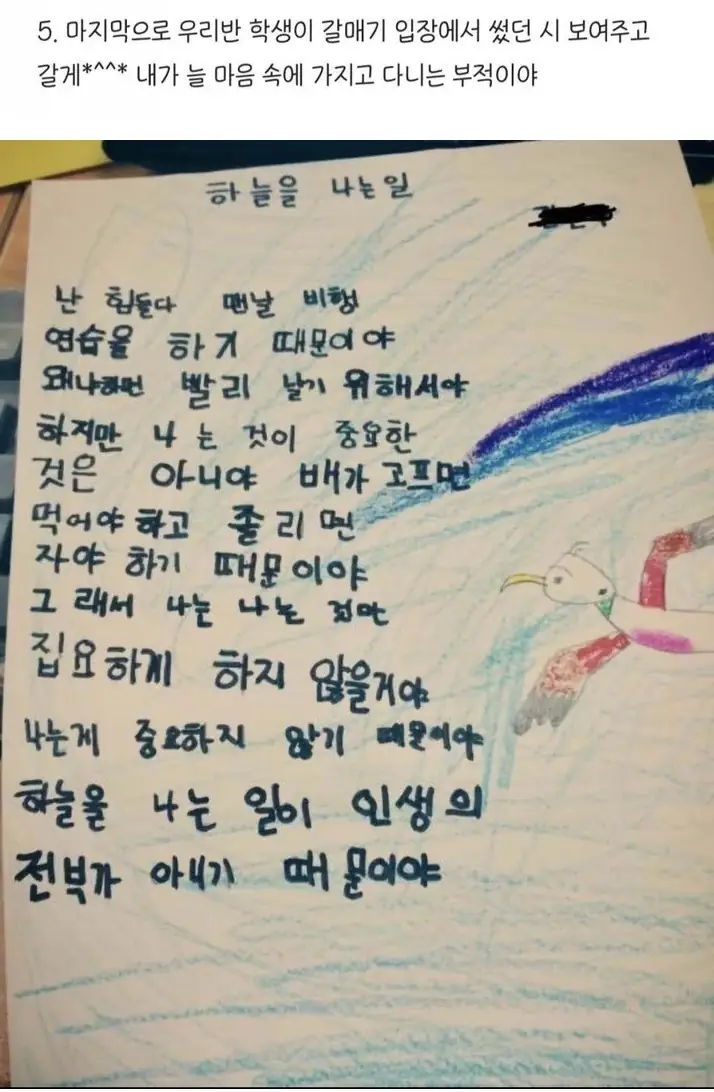 5. 마지막으로 우리반 학생이 갈매기 입장에서 썼던 시 보여주고
갈게*^^* 내가 늘 마음 속에 가지고 다니는 부적이야
하늘을 나는일
난 힘들다 맨날 비행
연습을 하기 때문이야
왜냐하면 빨리 날기 위해서야
하지만 나는 것이 중요한
것은 아니야 배가 고프면
먹어야 하고 졸리면
자야 하기 때문이야
그래서 나는 나는 것만
집요하게 하지 않을거야
나는게 중요하지 않기 때문이야
하늘을 나는 일이 인생의
전부가 아니기 때문이야